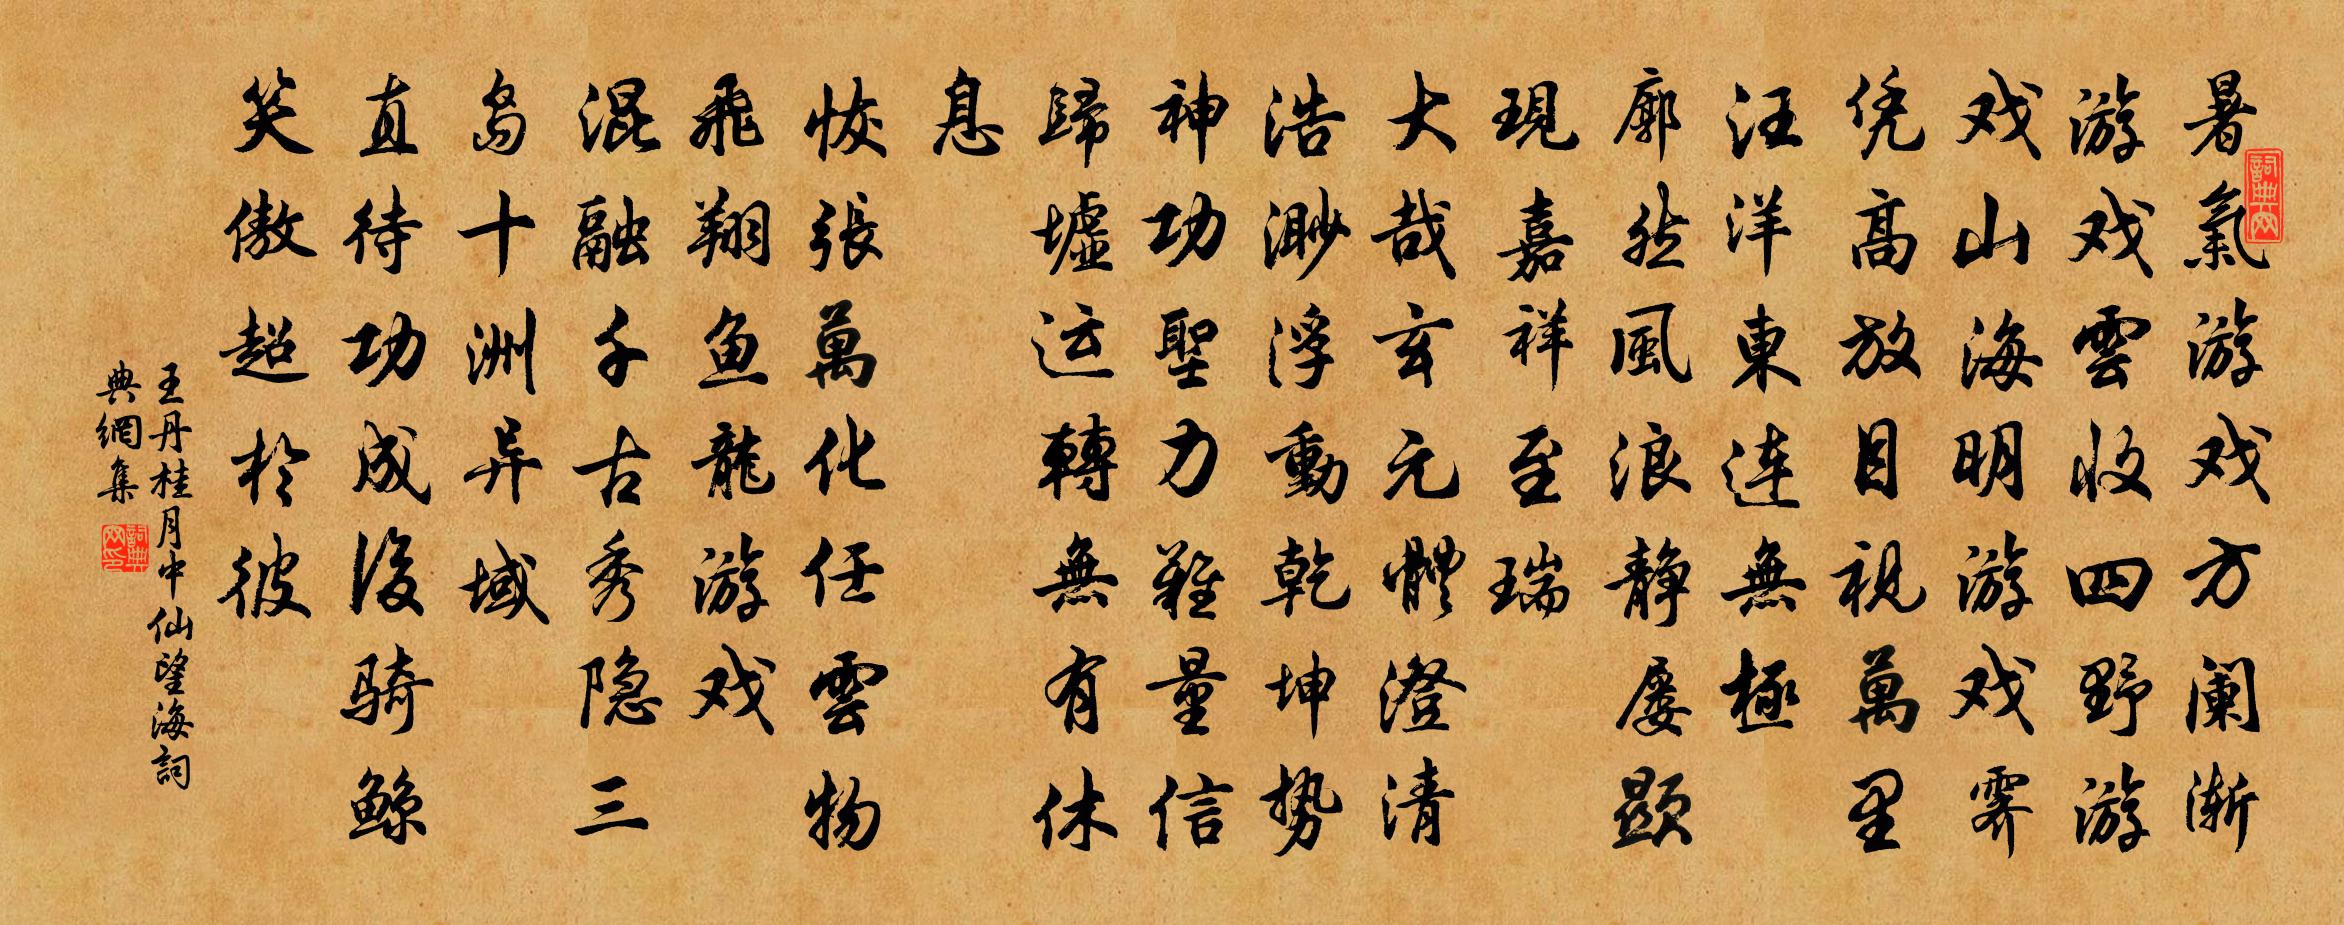 暑氣游戏方阑渐
游戏雲收四野游
戏山海明游戏霁
凭高放目視萬里
汪洋東连無極
廓然風浪静屡顕
現嘉祥至瑞
大哉玄元體澄清
浩渺浮動乾坤势
神功聖力難量信
歸墟运轉無有休
息
恢張萬化任雲物
飛翔鱼龍游戏
混融千古秀隐三
岛十洲异域
直待功成後骑鲸
笑傲超於彼
王丹桂月中仙望海詞
典網集
詞典网
詞典网印